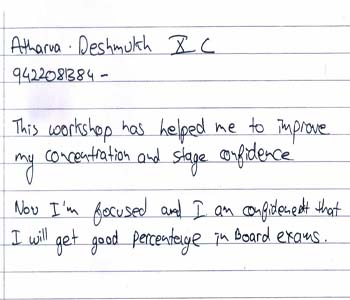 Atharva . Deshmukh X C
9422081384 -
This workshop has helped me to improve
my concentration and stage confidence
Now I'm focused and I am confidenedt that
I will get good percenteige in Board exams.